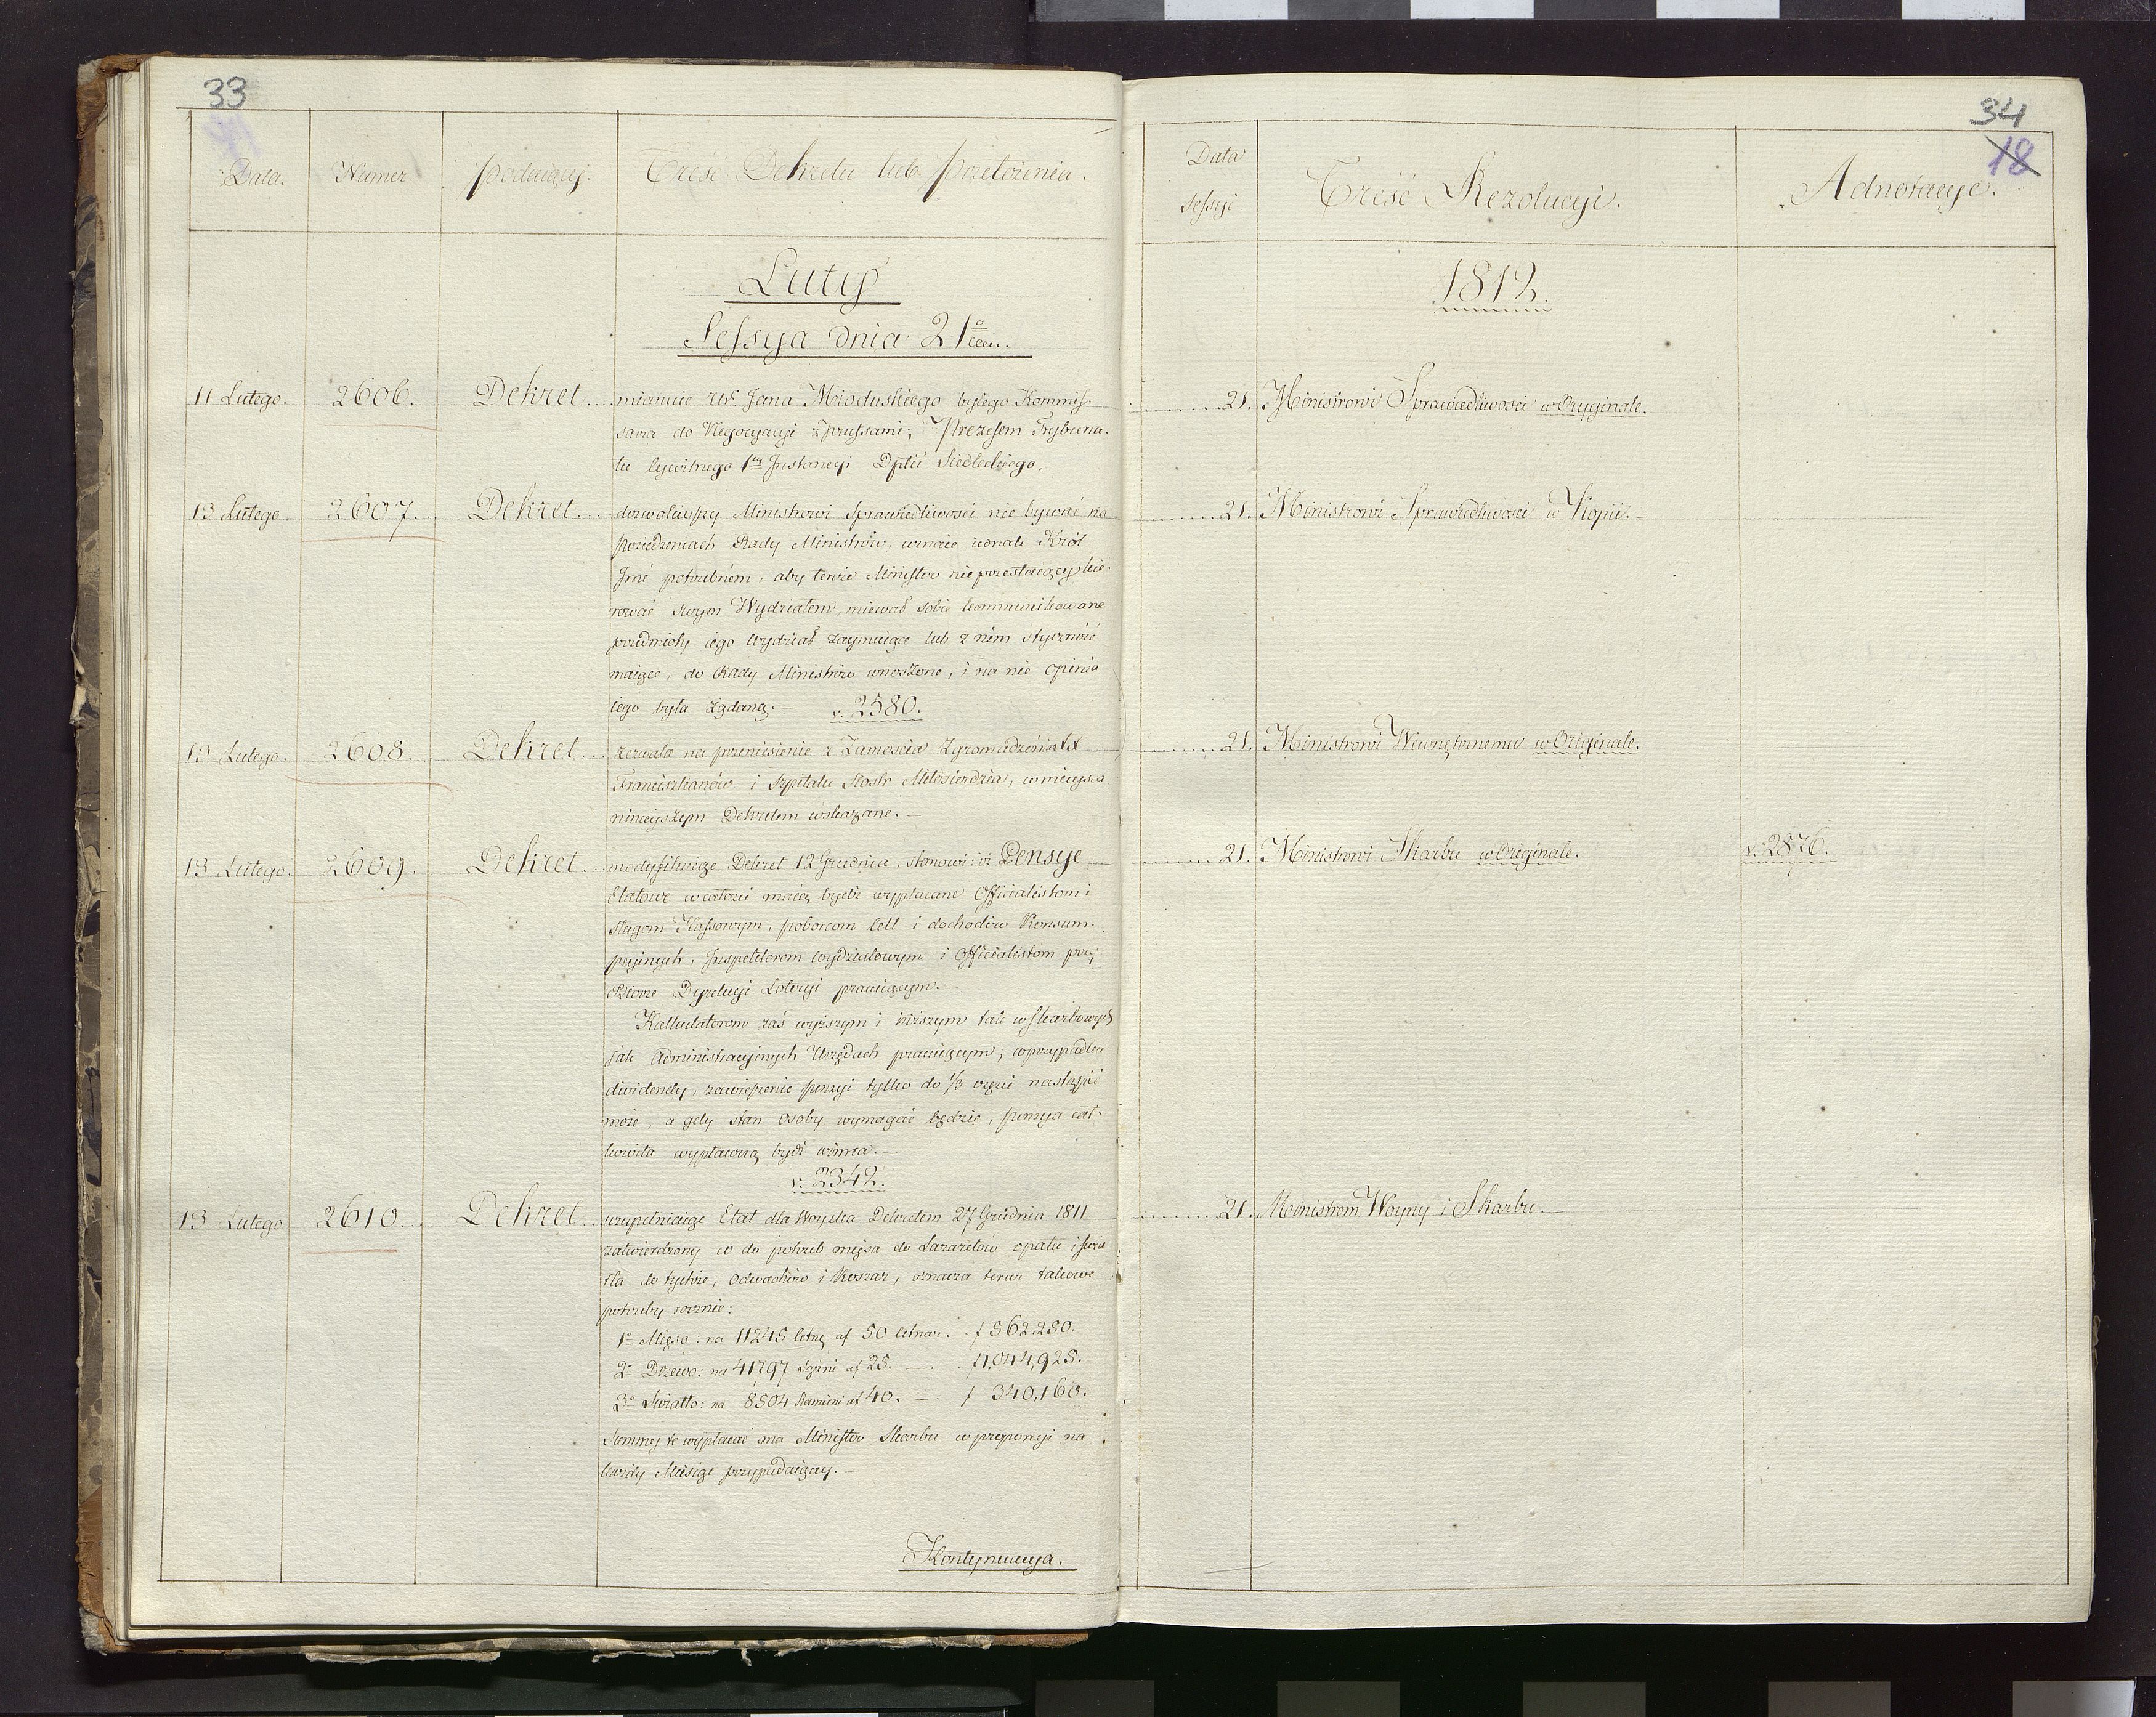 33
Data. Numer. podaiący. Treść Dekretu lub przełożenia.
Luty
Sessyja dnia 21o
11 Lutego. 2606. Dekret mianuie Jana Mioduskiego byłego Kommis-
sarza do Negocyacyi z Prussami, Prezesem Trybuna-
łu Cywilnego 1ey Instancyi Dpttu Siedleckiego.
13 Lutego 2607. Dekret dozwoliwszy Ministrowi Sprawiedliwości nie bywać na
posiedzeniach Rady Ministrów, uznaie iednak Król
Jmć potrzebném, aby tenże Minister nieprzestaiący kie-
rować swym Wydziałem, miewał sobie kommunikowane
przedmioty iego wydział zaymuiące lub z ním styczność
maiące, do Rady Ministrów wnoszone, i na nie opinia
iego była żądaną. v. 2580.
13 Lutego. 2608. Dekret zezwala na przeniesienie z Zamościa Zgromadzenia XX
Franciszkanów i Szpitalu Siostr Miłosierdzia, w mieysca
ninieyszym Dekretem wskazane.
13 Lutego. 2609. Dekret modyfikuiąc Dekret 12 Grudnia, stanowi: iż Pensye
Etatowe w całości maią bydź wypłacane Officialistom i
sługom Kassowym, poborcom Cełł i dochodów Konsum-
pcyinych, Inspektorom wydziałowym i Officialistom przy
Biorze Dyrekcyi Loteryi pracuiącym.
Kalkulatorom zaś wyższym i niższym tak w Skarbowych
jak Administracyjnych Urzędach pracuiącym, w przypadku
dividendy, zawieszenie pensyi tylko do 1/3 części nastąpić
może, a gdy stan osoby wymagać będzie, pensya cał-
kowita wypłacuną bydź winna.
v. 2342.
13 Lutego 2610. Dekret uzupełniaiąc Etat dla Woyska Dekretem 27 Grudnia 1811
zatwierdzony co do potrzeb mięsa do Lazaretów opału i świa
tła do tychże, Odwachów i Koszar, oznacza teraz takowe
potrzeby rocznie:
1o Mięso: na 11245 Cetnę af 50 Cetnar. f 562,250.
2o Drzewo: na 41797 sążni af 25. — f 1,044,925.
3o Światło: na 8504 Kamieni af 40. — f 340,160.
Summy te wypłacać ma Minister Skarbu w proporcyi na
każdy Miesiąc przypadaiącey.
Kontynuacya.
34
18
Data Sessyi Treść Rezolucyi. Adnotacye.
1812.
21. Ministrowi Sprawiedliwości w Oryginale.
21. Ministrowi Sprawiedliwości w Kopii.
21. Ministrowi Wewnętrznemu w Originale.
21. Ministrowi Skarbu w Originale. v. 2876.
21. Ministrom Woyny i Skarbu.